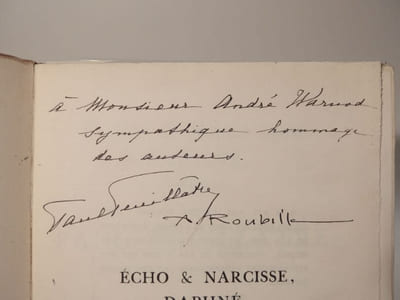 à Monsieur André Warnod
sympathique hommage
des auteurs.
Paul Feuillâtre
A Roubille
ÉCHO & NARCISSE,
DAPHNÉ